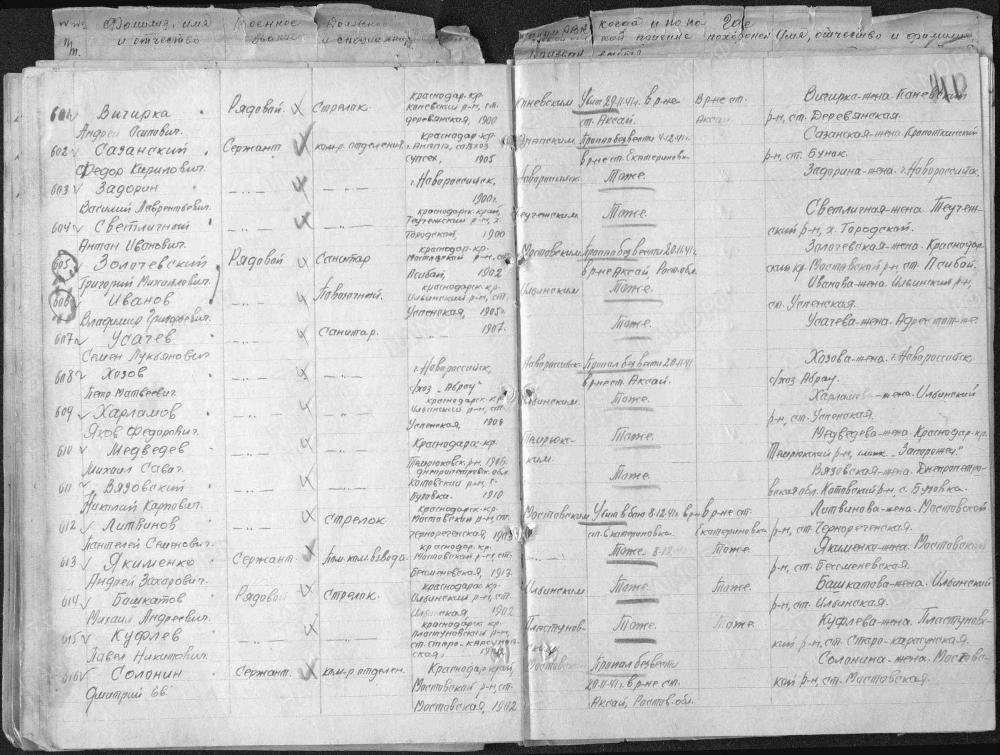 №№ Фамилия, имя Военное Должность когда и по ка- Где
п.п. и отчество звание и специальн. кой причине похоронен Имя, отчество и фамилия
601 Вигирка Рядовой Стрелок Краснодар. кр. Каневским Убит 29-11-41г. в р-не В р-не ст. Вигирка-жена. Каневский
Андрей Каневский р-н, ст. ст. Аксай. Аксай р-н, ст. Деревянская.
деревянская, 1900
602 Сазанский Сержант ком-р отделения Краснодар. кр. Анапским Пропал безвести 4-12-41г. Сазанская-жена Кропоткинский
Федор Карпович. г. Анапа, совхоз в р-не ст. Екатериновки р-н, ст. Бунок.
1905
603 Задорин — „ — г. Новороссийск, Новороссийск Тоже. Задорина-жена. г. Новороссийск
Василий Лаврентьевич. 1900г.
604 Светличный — „ — Краснодарск. край, Теучежским Тоже. Светличная-жена Теучеж-
Антон Иванович. Теучежский р-н, х. ский р-н, х. Городской.
Городской, 1900
605 Золочевский Рядовой Санитар Краснодар. кр. Мостовским Пропал безвести 29.11.41г. Золочевская-жена. Краснодар-
Григорий Михайлович Мостовской р-н, ст. в р-не Аксай Ростовск. ский кр. Мостовской р-н, ст. Псибай.
Псибай, 1902
606 Иванов — „ — Повозочный. Краснодарск. кр. Ильинским Тоже. Иванова-жена. Ильинский р-н,
Владимир Григорьевич. Ильинский р-н, ст. ст. Успенская.
Успенская, 1905г.
607 Усачев — „ — Санитар. 1907. Тоже. Усачева-жена. Адрес тот-же.
Семен Лукьянович
608 Хозов — „ — г. Новороссийск, Новороссийск Пропал безвести 29.11.41 Хозова-жена. г. Новороссийск,
Петр Матвеевич. с/хоз „Абрау" в р-не ст. Аксай. с/хоз Абрау.
609 Харламов — „ — Краснодарск. кр. Ильинским Тоже. Харламова-жена. Ильинский
Яков Федорович. Ильинский р-н, ст. р-н, ст. Успенская.
Успенская, 1906
610 Медведев — „ — Краснодарск. кр. Темрюк- Тоже. Медведева-жена. Краснодар. кр.
Михаил Савич. Темрюковск. р-н, 1906. ским. Темрюкский р-н, „Запорожец."
611 Вязовский — „ — Днепропетровск. обл. Тоже. Вязовская-жена. Днепропетро-
Николай Карпович. Котовский р-н, с. вская обл. Котовский р-н, с. Бузовка.
Бузовка. 1910
612 Литвинов — „ — стрелок Краснодарск. кр. Мостовским Убит в бою 8-12-41г. в р-не В р-не ст. Литвинова-жена. Мостовской
Пантелей Семенович. Мостовский р-н, ст. ст. Екатериновка. Екатериновка р-н, ст. Чернореченская.
Чернореченская, 1903
613 Якименко Сержант. Пом. ком. взвода. Краснодарск. кр. — „ — Тоже 8-12-41 Тоже. Якименко-жена. Мостовской
Андрей Захарович. Мостовский р-н, ст. р-н, ст. Бесменевская.
Бесменевская, 1917.
614 Башкатов Рядовой Стрелок. Краснодарск. кр. Ильинским Тоже. Тоже. Башкатова-жена. Ильинский
Михаил Андреевич. Ильинский р-н, ст. р-н, ст. Ильинская.
Ильинская, 1902
615 Куфлев — „ — — „ — Краснодарск. кр. Пластунов- Тоже. Тоже Куфлева-жена. Пластуновс-
Павел Никитович. Пластуновский р-н, ским кий р-н, ст. Старо-карсунская.
ст. Старо-карсунов-
ская,
616 Солонин Сержант. ком-р отделен. Краснодар. край, Мостовским Пропал безвести Солонина-жена. Мостовс-
Дмитрий Мостовской р-н, ст. 29-11-41г. в р-не ст. кой р-н, ст. Мостовская.
Мостовская, 1902 Аксай, Ростов. обл.